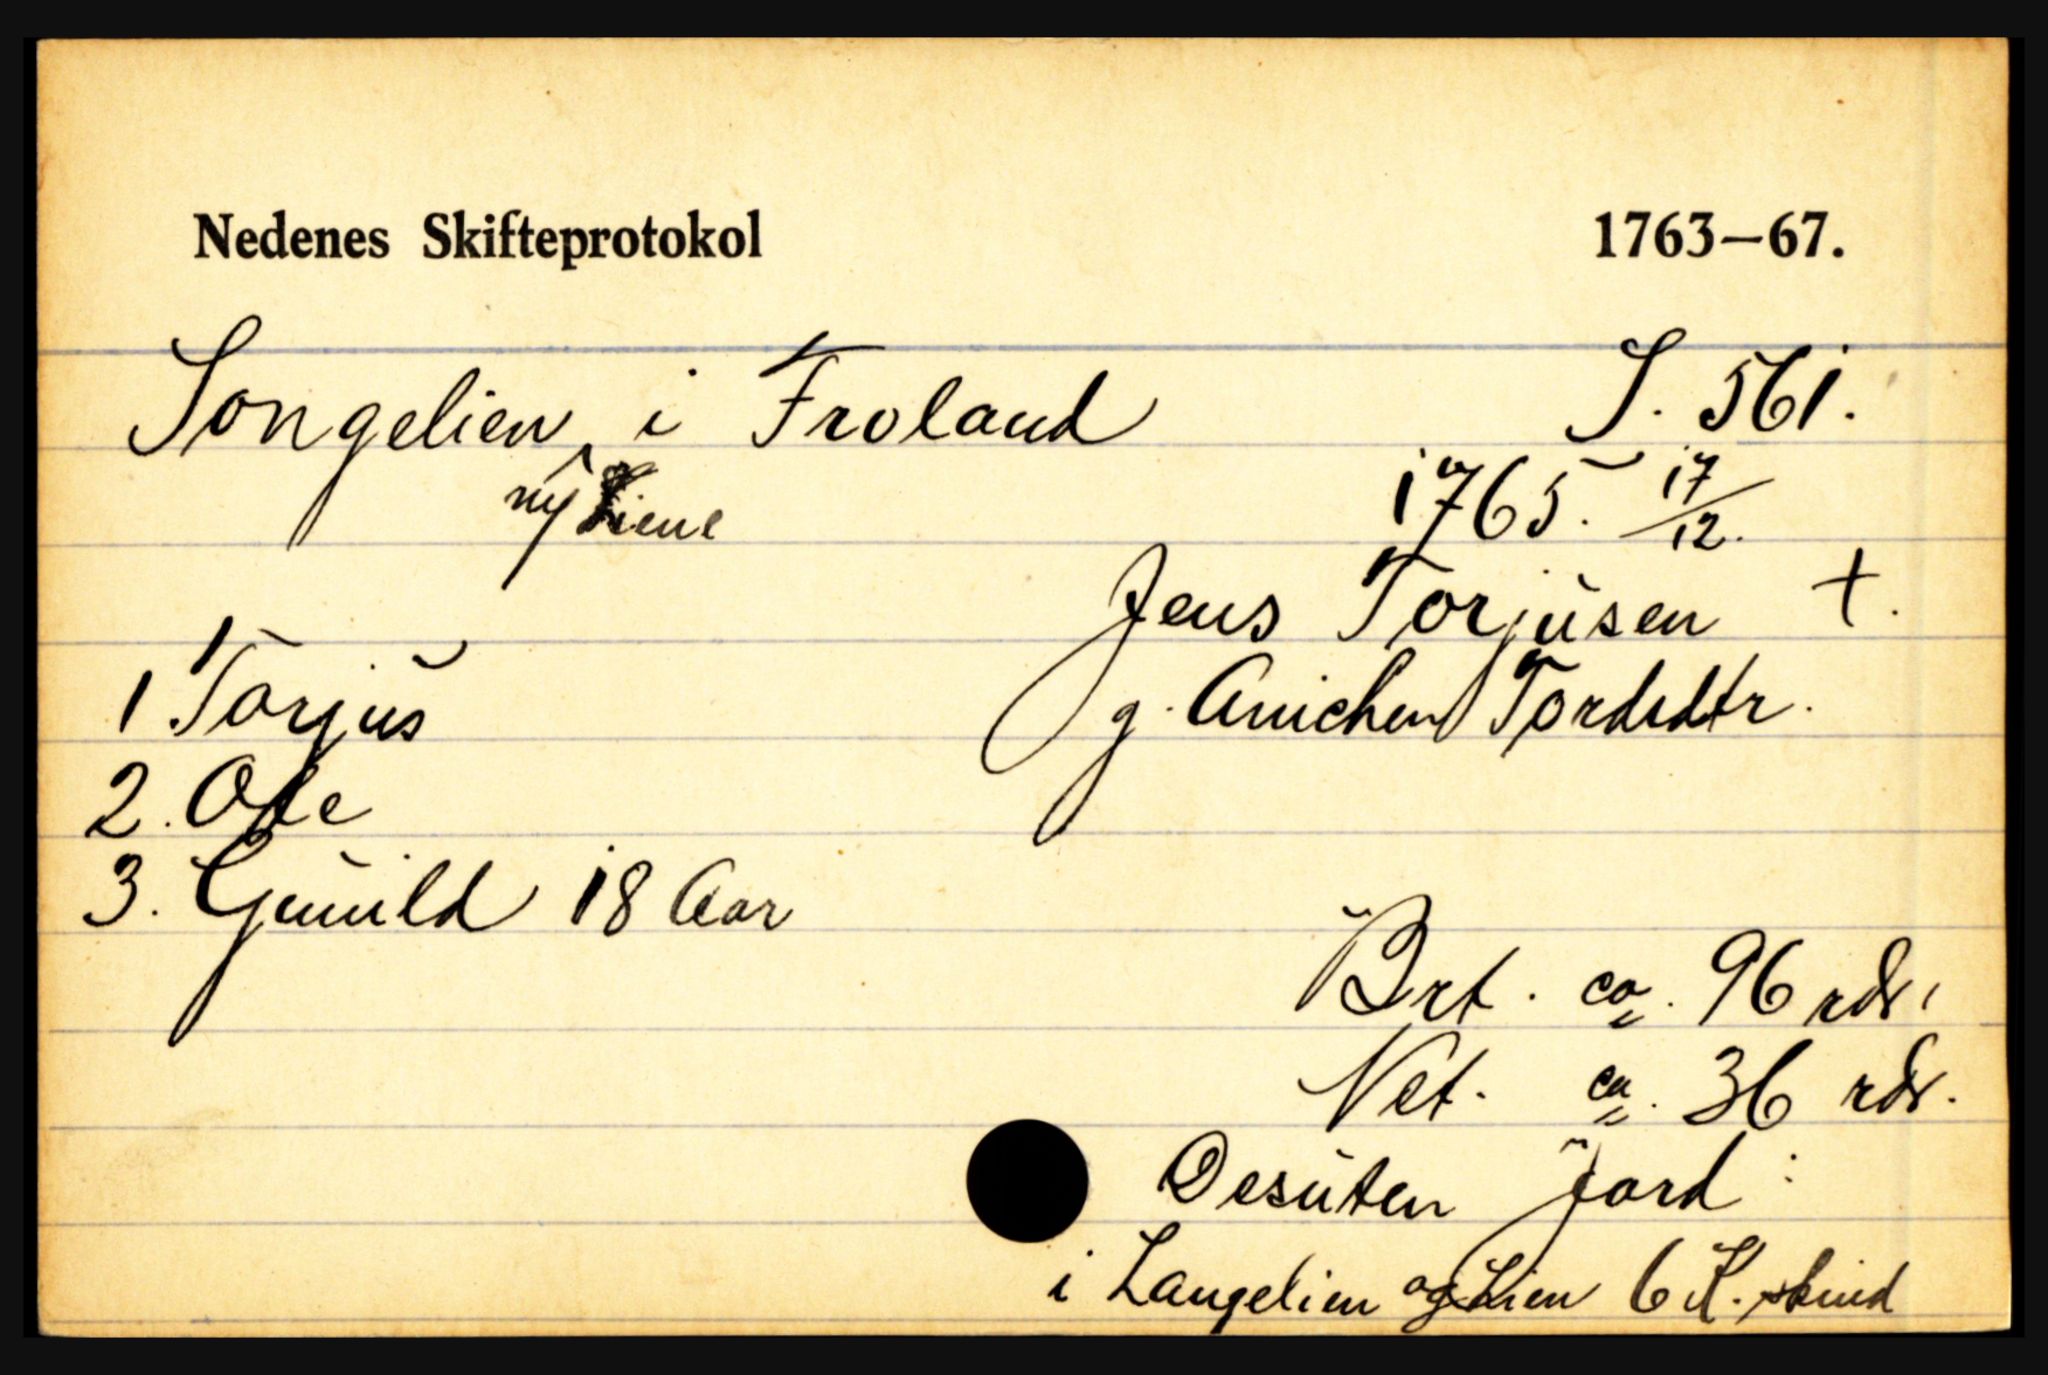 Nedenes Skifteprotokol 1763—67.
Songelien, i Froland S. 561.
ny Liene 1765. 17/12.
Jens Torjusen +.
1. Torjus g. Anichen Tordsdtr.
2. Ole
3. Gunild 18 Aar
Brt. ca. 96 rdr.
Net. ca. 36 rdr.
Desuten Jord:
i Langelien og Lien 6 K. skind